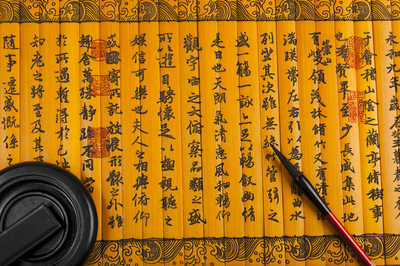 永和九年
于會稽山陰之蘭亭脩稧事
也羣賢畢至少長咸集此地
有崇山峻領茂林脩竹又有清流激
湍暎帶左右引以為流觴曲水
列坐其次雖無絲竹管弦之
盛一觴一詠亦足以暢敘幽情
是日也天朗氣清惠風和暢仰
觀宇宙之大俯察品類之盛
所以遊目騁懷足以極視聽之
娛信可樂也夫人之相與俯仰
或因寄所託放浪形骸之外雖
趣舍萬殊靜躁不同
於所遇蹔得於己
知老之將至及其所
隨事遷感慨係